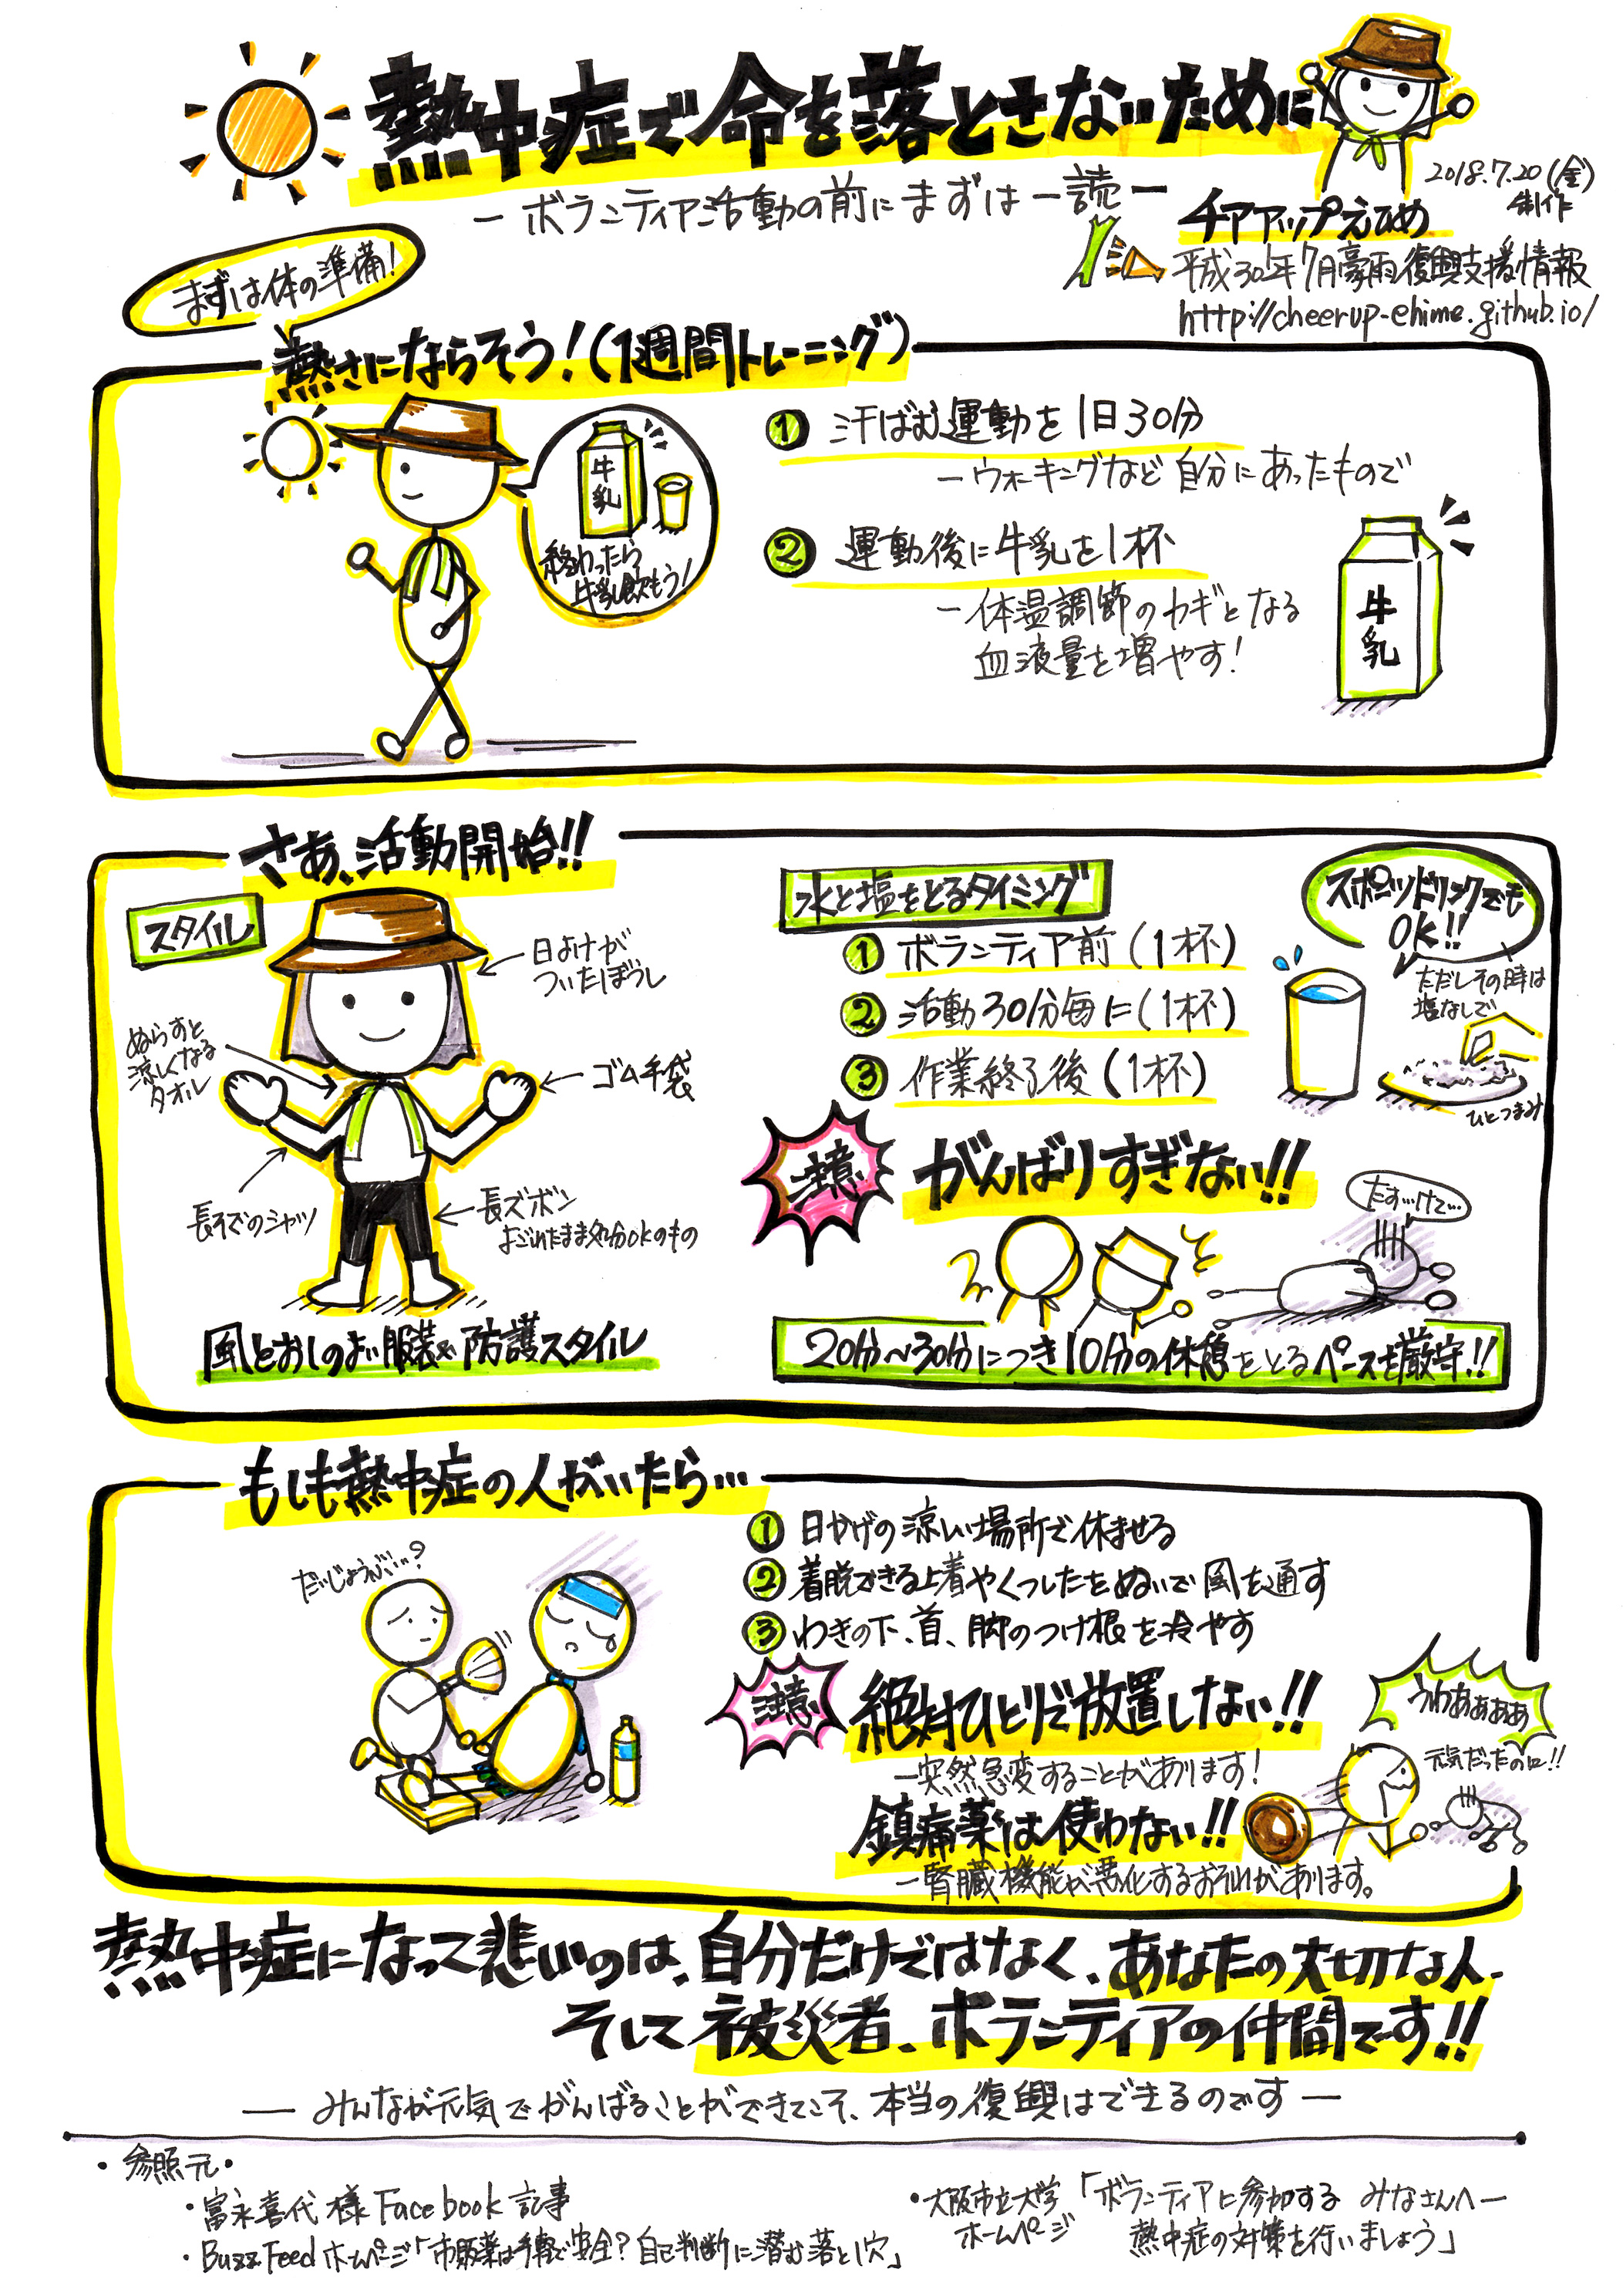 熱中症で命を落とさないために
ーボランティア活動の前にまずは一読ー
2018.7.20(金)
制作
チアアップえひめ
平成30年7月豪雨復興支援情報
http://cheerup-ehime.github.io/
まずは体の準備!
熱さにならそう!(1週間トレーニング)
牛乳
終わったら
牛乳飲もう!
① 汗ばむ運動を1日30分
ーウォーキングなど自分にあったもので
② 運動後に牛乳を1杯
ー体温調節のカギとなる
血液量を増やす!
牛乳
さあ、活動開始!!
スタイル
日よけが
ついたぼうし
ぬらすと
涼しくなる
タオル
ゴム手袋
長そでのシャツ
長ズボン
よごれたまま処分OKのもの
風とおしのよい服装や防護スタイル
水と塩をとるタイミング
① ボランティア前(1杯)
② 活動30分毎に(1杯)
③ 作業終了後(1杯)
スポーツドリンクでも
OK!!
ただしその時は
塩なしで
ひとつまみ
注意
がんばりすぎない!!
たす…けて…
20分〜30分につき10分の休憩をとるペースを厳守!!
もしも熱中症の人がいたら…
だいじょうぶ…?
① 日かげの涼しい場所で休ませる
② 着脱できる上着やくつしたをぬいで風を通す
③ わきの下、首、脚のつけ根を冷やす
注意
絶対ひとりで放置しない!!
ー突然急変することがあります!
うわぁぁぁぁ
元気だったのに!!
鎮痛薬は使わない!!
ー腎臓機能が悪化するおそれがあります。
熱中症になって悲しいのは、自分だけではなく、あなたの大切な人、
そして被災者、ボランティアの仲間です!!
ーみんなが元気でがんばることができてこそ、本当の復興はできるのですー
・参照元・
・富永喜代様Facebook記事
・BuzzFeedホームページ「市販薬は手軽で安全?自己判断に潜む落とし穴」
・大阪市立大学
ホームページ
「ボランティアに参加するみなさんへー
熱中症の対策を行いましょう」